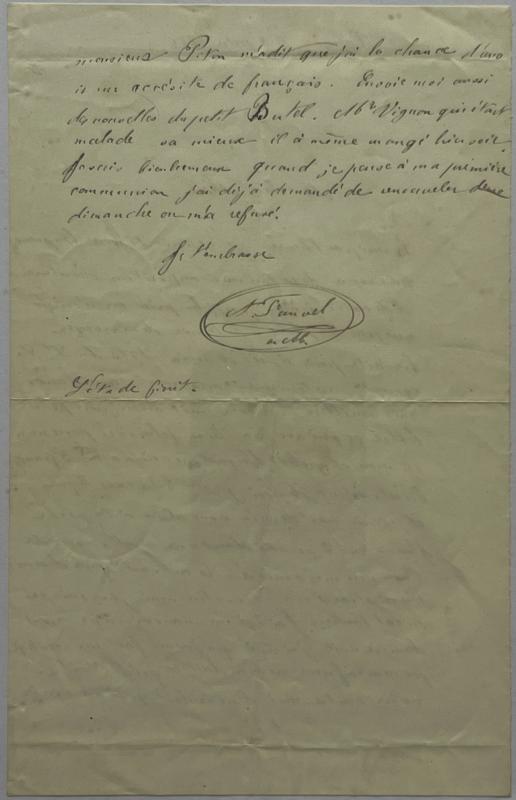 monsieur Peton m'a dit que j'ai la chance d'avo
ir un accésite de français. Envoie moi aussi
des nouvelles du petit Butel. Mr Vignon qui était
malade va mieux il à même mangé hier soir.
Je suis bienheureux quand je pense à ma première
communion j'ai déjà demandé de renouveler
dimanche on m'a refusé.
Je t'embrasse